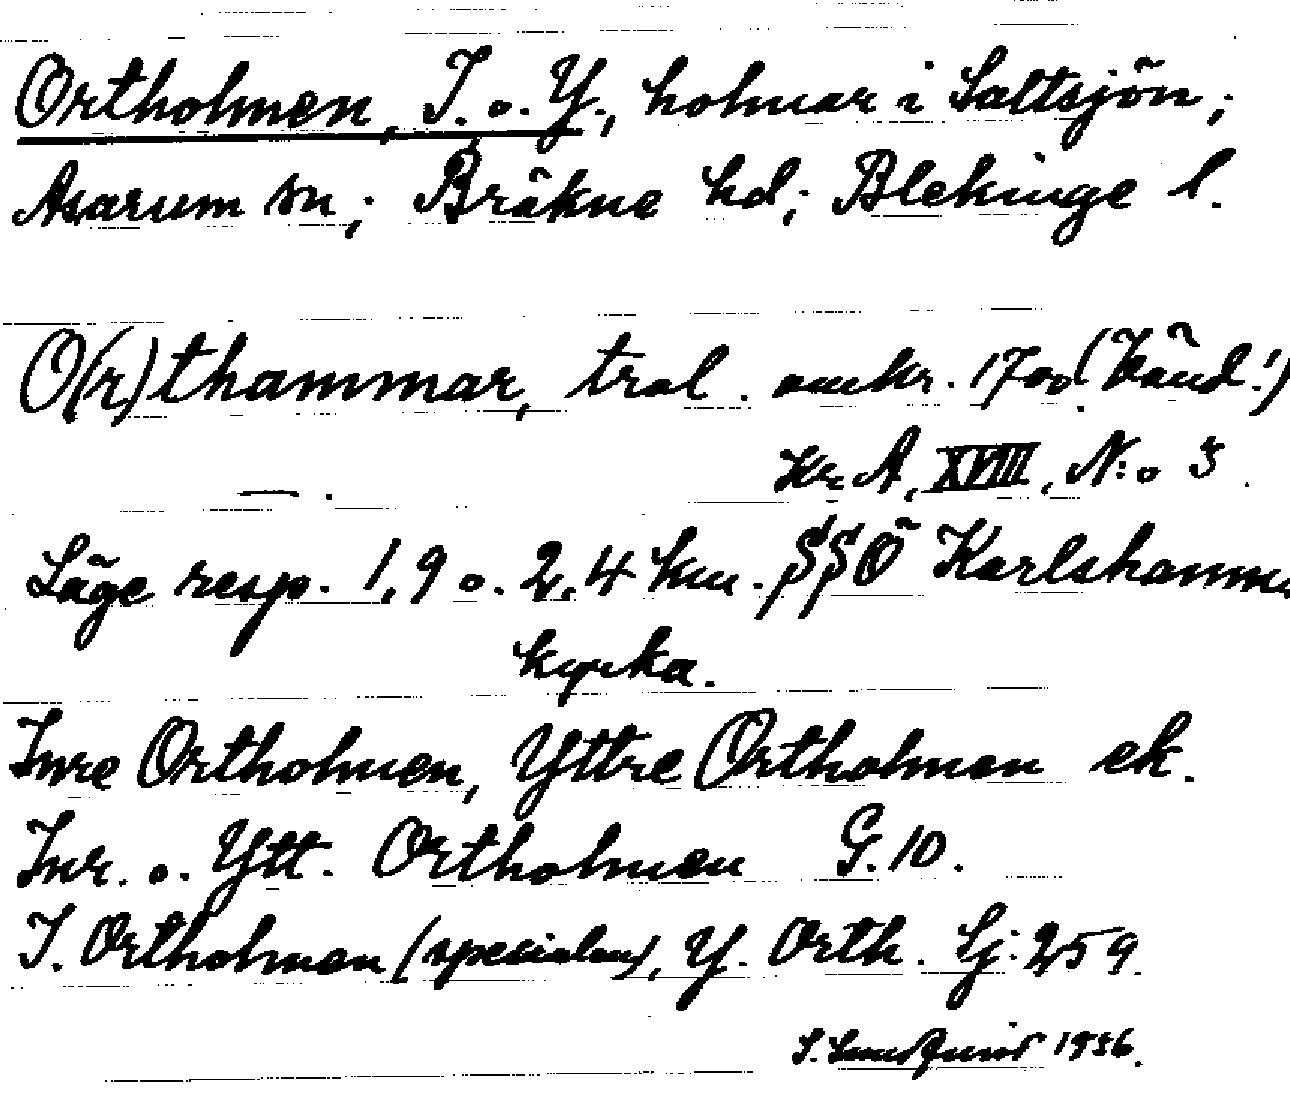 Ortholmen, I. o. Y., holmar i Saltsjön;
Asarum sn; Bräkne hd; Blekinge l.
O(r)thammar, trol. omkr. 1700 (Händ.!)
Kr. A, XVIII, N:o 3
— .
Läge resp. 1,9 o. 2,4 km. SSÖ Karlshamns
kyrka.
Inre Ortholmen, Yttre Ortholmen ek.
Inr. o. Ytt. Ortholmen G. 10.
I. Ortholmen (specialen), Y. Orth. Sj: 259.
1936.